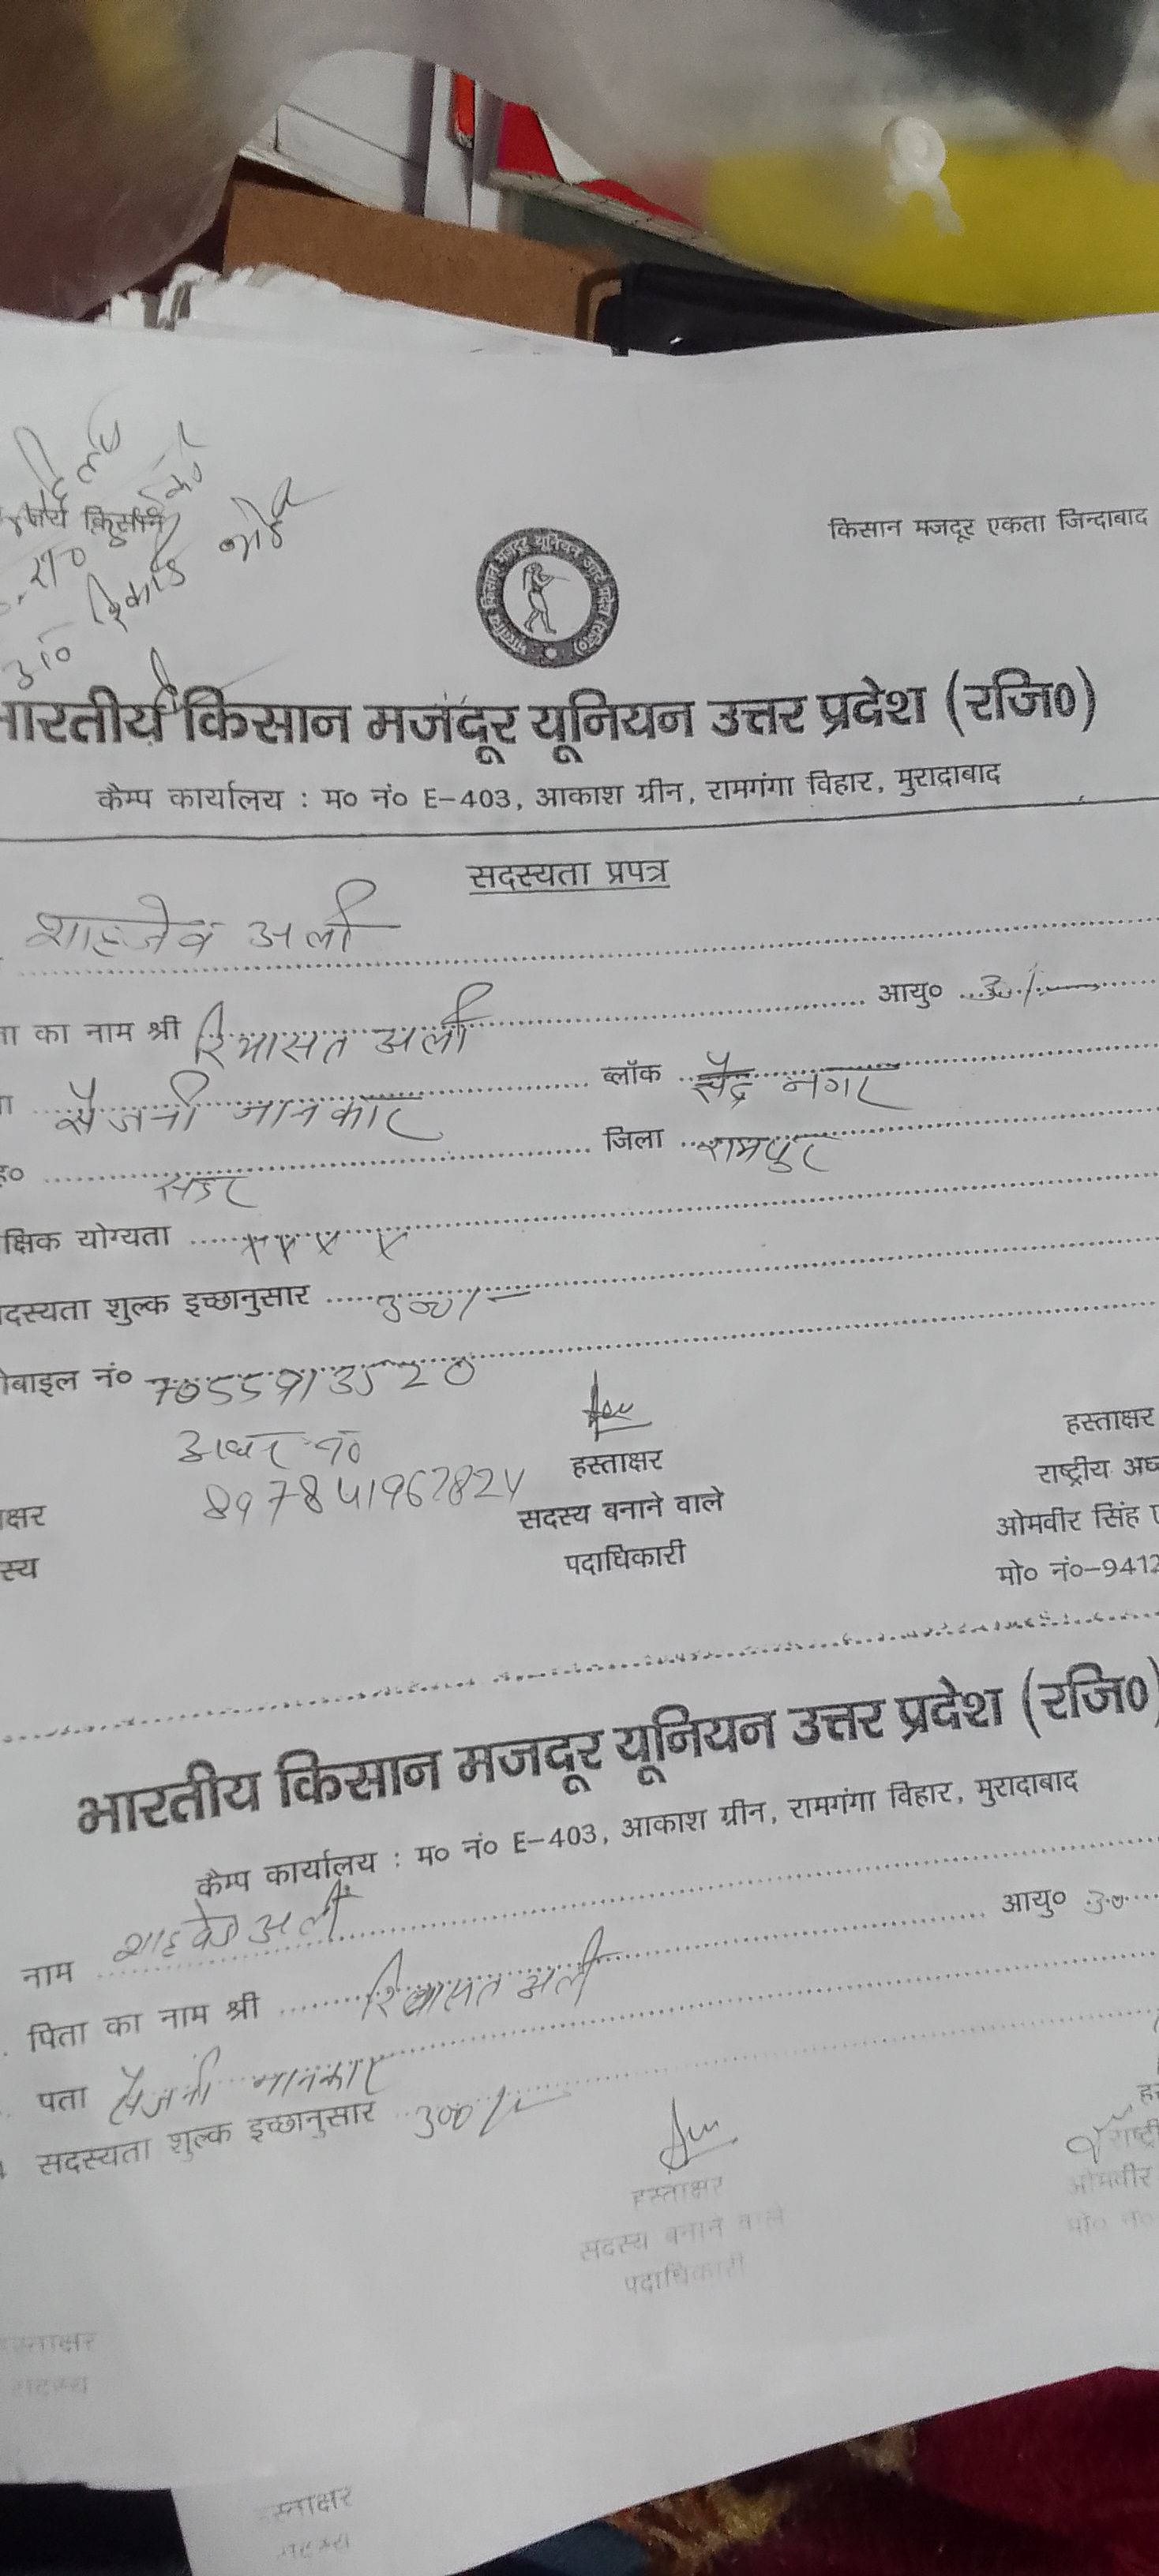 किसान मजदूर एकता जिन्दाबाद
भारतीय किसान मजदूर यूनियन उत्तर प्रदेश (रजि०)
ारतीय किसान मजदूर यूनियन उत्तर प्रदेश (रजि०)
कैम्प कार्यालय : म० नं० E-403, आकाश ग्रीन, रामगंगा विहार, मुरादाबाद
सदस्यता प्रपत्र
शाहजेब अली
ता का नाम श्री रियासत अली आयु०
सैजनी नानकार ब्लॉक सैद नगर
ह० सदर जिला रामपुर
क्षिक योग्यता ×××× 
दस्यता शुल्क इच्छानुसार 300/-
ोबाइल नं० 7055913520
आधार नं०
897841967824
हस्ताक्षर हस्ताक्षर
ाक्षर सदस्य बनाने वाले राष्ट्रीय अध्य
स्य पदाधिकारी ओमवीर सिंह
मो० नं०-9412
भारतीय किसान मजदूर यूनियन उत्तर प्रदेश (रजि०)
कैम्प कार्यालय : म० नं० E-403, आकाश ग्रीन, रामगंगा विहार, मुरादाबाद
नाम शाहजेब अली
पिता का नाम श्री रियासत अली आयु० 30
पता सैजनी नानकार
सदस्यता शुल्क इच्छानुसार 300/-
हस्ताक्षर राष्ट्री
सदस्य बनाने वाले ओमवीर
पदाधिकारी मो० नं०
हस्ताक्षर
सदस्य
स्ताक्षर